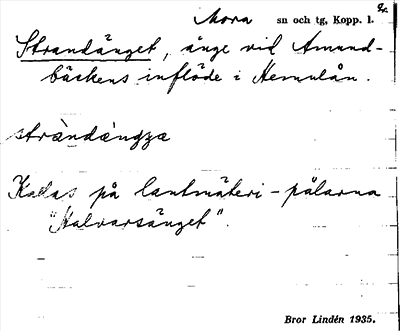 Mora sn och tg, Kopp. l.
Strandänget, änge vid Amund-
bäckens inflöde i Hemulån.
stràndàngʒa
Kallas på lantmäteri-pälarna
"Halvarsänget".
Bror Lindén 1935.